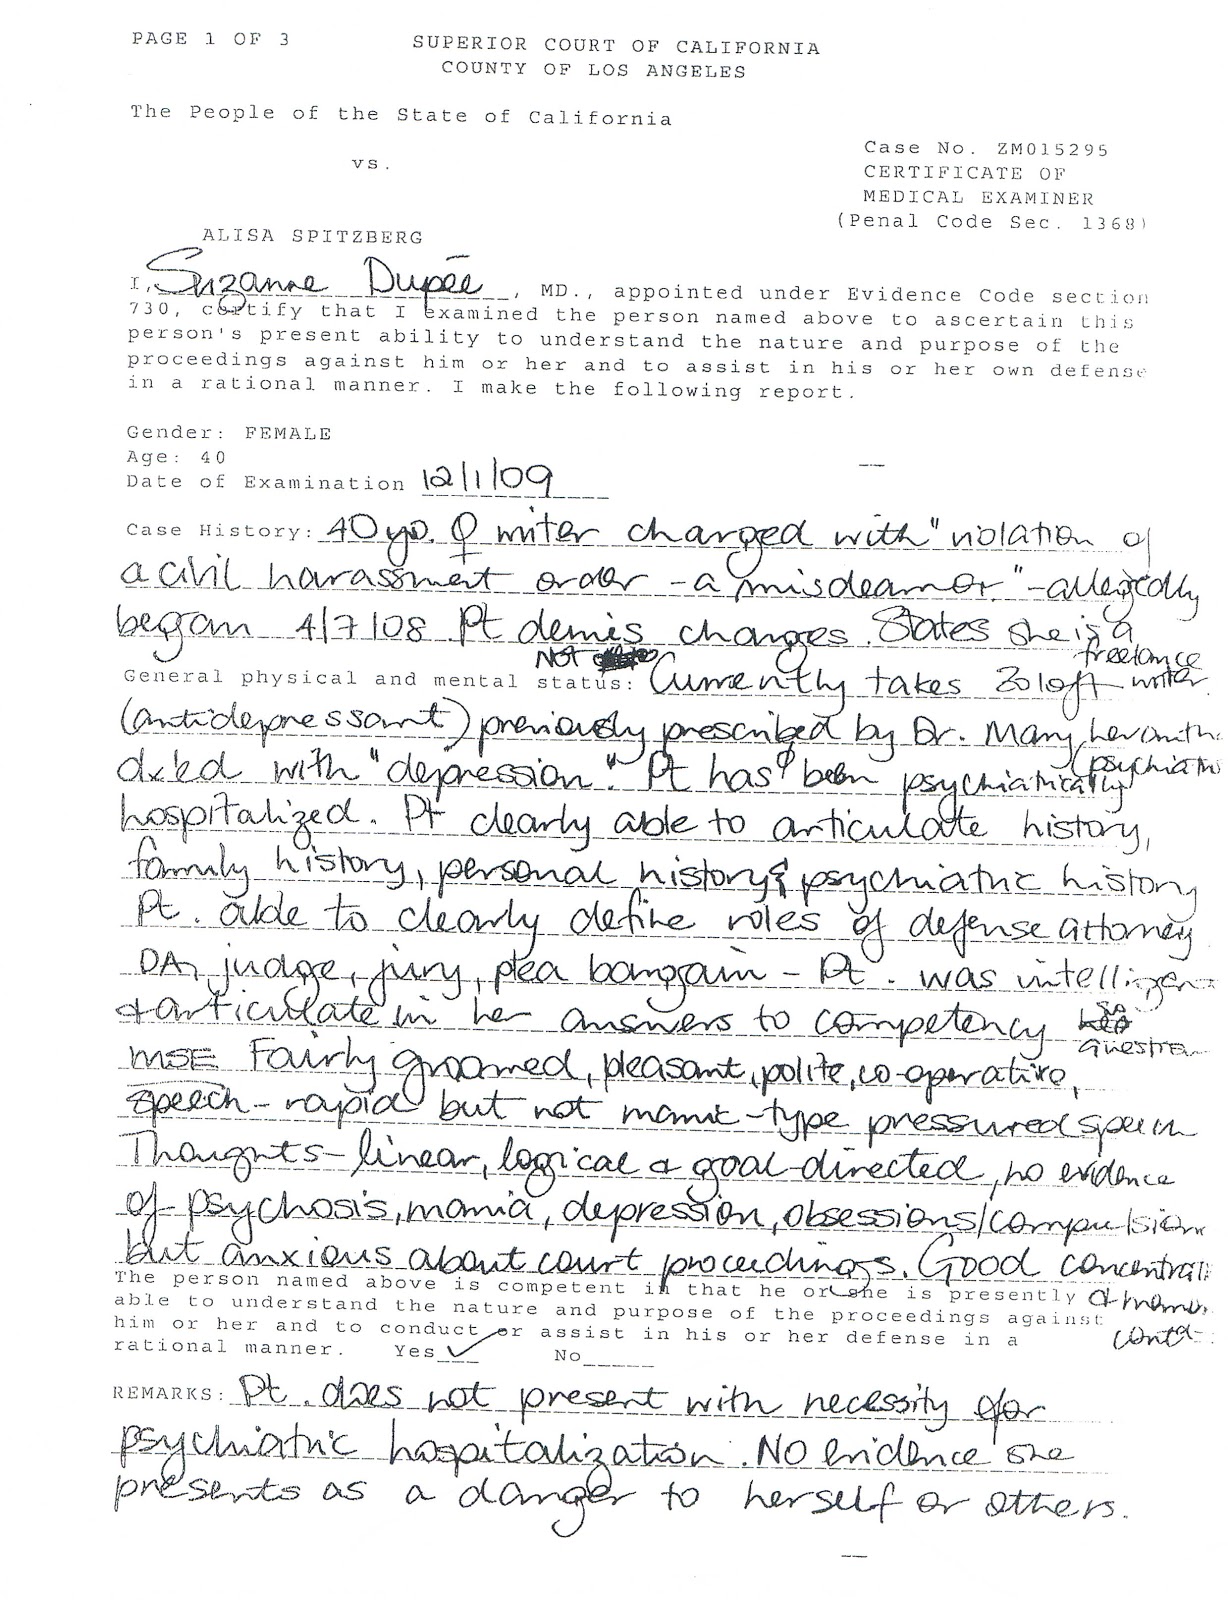 PAGE 1 OF 3
SUPERIOR COURT OF CALIFORNIA
COUNTY OF LOS ANGELES
The People of the State of California
vs.
Case No. ZM015295
CERTIFICATE OF
MEDICAL EXAMINER
(Penal Code Sec. 1368)
ALISA SPITZBERG
I, Suzanne Dupée, MD., appointed under Evidence Code section
730, certify that I examined the person named above to ascertain this
person's present ability to understand the nature and purpose of the
proceedings against him or her and to assist in his or her own defense
in a rational manner. I make the following report.
Gender: FEMALE
Age: 40
Date of Examination 12/1/09
Case History: 40 yo. ♀ writer charged with "violation of
a civil harassment order - a misdeamor." - allegedly
began 4/7/08 Pt denies charges. States she is a
freelance
writer
NOT
General physical and mental status: Currently takes Zoloft
(antidepressant) previously prescribed by Dr. Many, her
(psychiatri
dx'ed with "depression". Pt has φ been psychiatrically
hospitalized. Pt clearly able to articulate history,
family history, personal history & psychiatric history
Pt. able to clearly define roles of defense attorney
DA, judge, jury, plea bargain - Pt. was intelligent
& articulate in her answers to competency
questions
MSE Fairly groomed, pleasant, polite, co-operative,
speech - rapid but not manic-type pressured speech
Thoughts - linear, logical & goal-directed, no evidence
of psychosis, mania, depression, obsessions/compulsion
but anxious about court proceedings. Good concentrati
& memo
contd
The person named above is competent in that he or she is presently
able to understand the nature and purpose of the proceedings against
him or her and to conduct or assist in his or her defense in a
rational manner. Yes ✓ No
REMARKS: Pt. does not present with necessity for
psychiatric hospitalization. No evidence she
presents as a danger to herself or others.